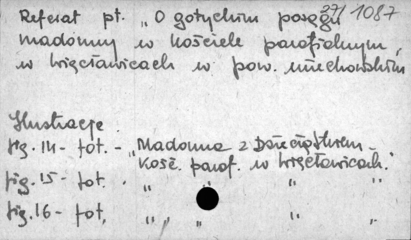 37/1087
Referat pt. „O gotyckim posągu
madonny w kościele parafialnym,
w Więcławicach w pow. miechowskim
Ilustracje
fig. 14 - fot. - „Madonna z Dzieciątkiem -
Kość. paraf. w Więcławicach."
fig. 15 - fot. „ „ „ „
fig. 16 - fot. „ „ „ „